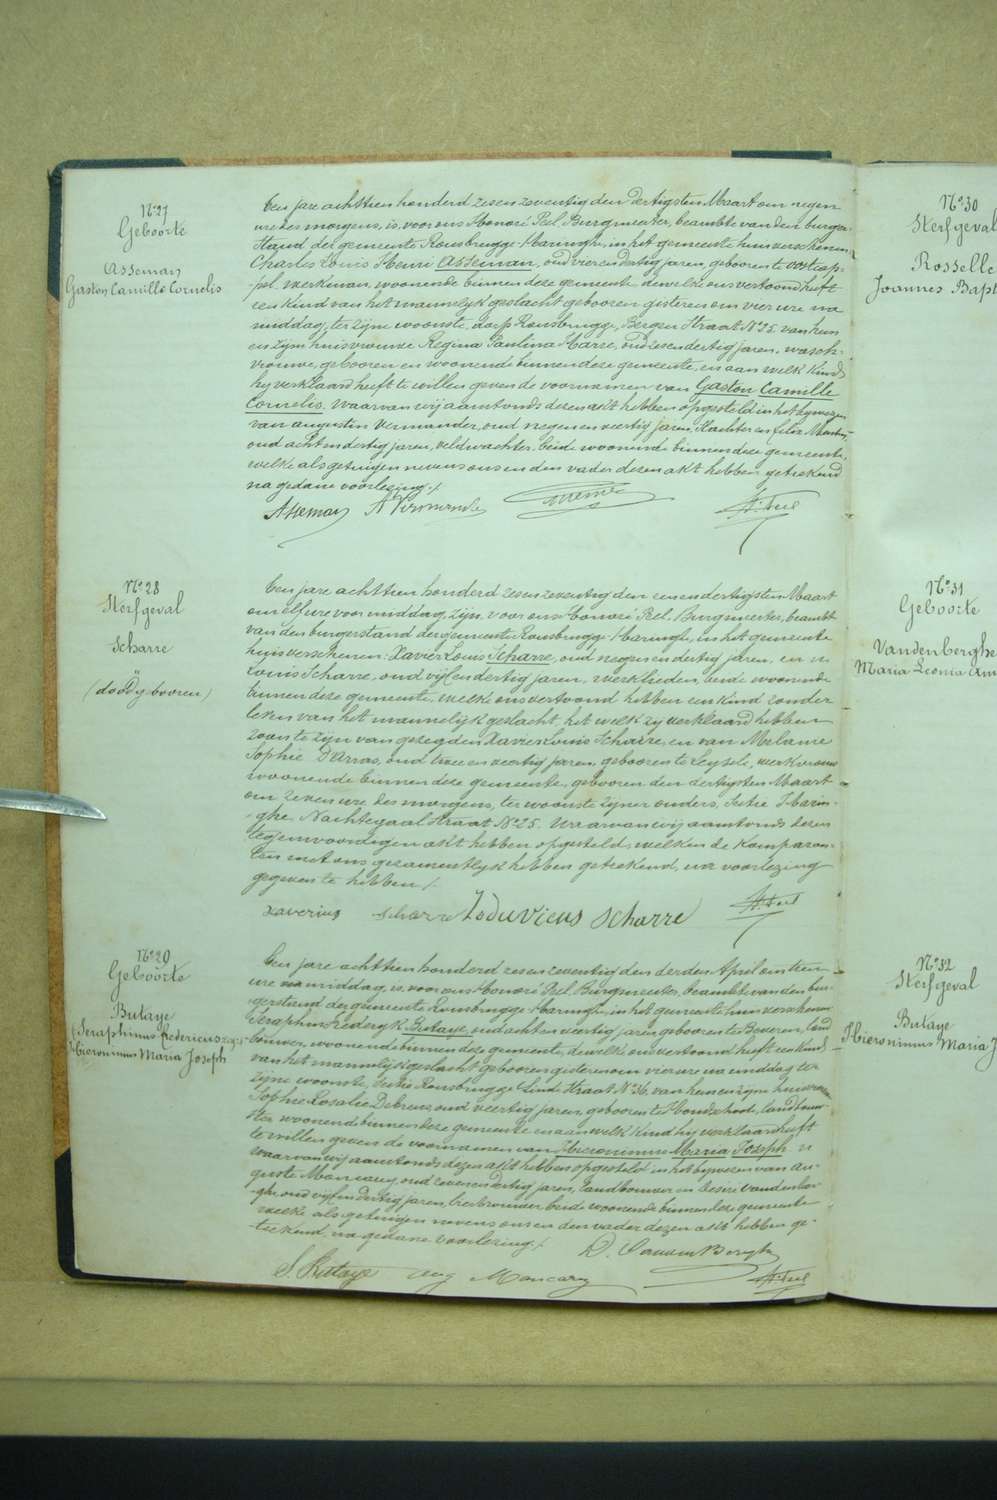 N° 27
Geboorte
Asseman
Gaston Camille Cornelis
Een jare achttien honderd zes en zeventig den dertigsten Maart om negen
ure des morgens, is, voor ons Honoré Rel, Burgmeester, beambte van den burger-
stand der gemeente Rousbrugge-Haringhe, in het gemeente huis verschenen
Charles Louis Henri Asseman, oud vier en dertig jaren, geboren te Oostcap-
pel, werkman, woonende binnen deze gemeente dewelke ons vertoond heeft
een kind van het mannelijk geslacht geboren gisteren om vier ure na
middag, ter zijne woonste, dorp Rousbrugge, Bergen Straat N° 25. van hem
en zijne huisvrouwe Regina Paulina Marre, oud zes en dertig jaren, wasch-
vrouwe, geboren en woonende binnen deze gemeente, en aan welk kind
hij verklaard heeft te willen geven de voornamen van Gaston Camille
Cornelis. Waarvan wij aamtonds dezen akt hebben opgesteld in het bywezen
van Augustin Vermander, oud negen en veertig jaren, en Felix
oud acht en dertig jaren, veldwachter, beide woonende binnen deze gemeente,
welke als getuigen nevens ons en den vader dezen akt hebben geteekend
na gedane voorlezing ./.
Asseman A Vermander
N° 28
Sterfgeval
Scharre
(dood geboren)
Een jare achttien honderd zes en zeventig den een en dertigsten Maart
om elf ure voormiddag, zijn, voor ons Honoré Rel, Burgmeester, beambte
van den burgerstand der gemeente Rousbrugge-Haringhe, in het gemeente
huis verschenen: Xavier Louis Scharre, oud negen en dertig jaren, en
Louis Scharre, oud vijf en dertig jaren, werklieden, beide woonende
binnen deze gemeente, welke ons vertoond hebben een kind zonder
leven van het mannelijk geslacht, het welk zij verklaard hebben
zoon te zijn van gezegden Xavier Louis Scharre, en van Melanie
Sophie D'Arras, oud twee en veertig jaren, geboren te Leysele, werkvrouw
woonende binnen deze gemeente, geboren den dertigsten Maart
om zeven ure des morgens, ter woonste zijner ouders, Sectie Harin-
ghe Nachtegaal Straat N° 25. Waarvan wij aamtonds dezen
tegenwoordigen akt hebben opgesteld, welken de komparan-
ten met ons gezamentlijk hebben geteekend, na voorlezing
gegeven te hebben ./.
Xaverius Scharre Loduvicus Scharre
N° 29
Geboorte
Butaye
Hieronimus Maria Joseph
Een jare achttien honderd zes en zeventig den derden April om tien
ure namiddag, is, voor ons Honoré Rel, Burgmeester, beambte van den bur-
gerstand der gemeente Rousbrugge-Haringhe, in het gemeente huis verschenen
Seraphin Frederyk Butaye, oud acht en veertig jaren geboren te Beveren, land-
bouwer, woonende binnen deze gemeente, dewelke ons vertoond heeft een kind
van het mannelijk geslacht geboren gisteren om vier ure na middag ter
zijne woonste, Sectie Rousbrugge Linde Straat N° 36, van hem en zijne huisvrouw
Sophie Rosalie Debreu, oud veertig jaren, geboren te Hondschoote, landbouw-
ster, woonende binnen deze gemeente en aan welk kind hij verklaard heeft
te willen geven de voornamen van Hieronimus Maria Joseph
waarvan wij aamtonds dezen akt hebben opgesteld in het bywezen van Au-
guste Mancaey, oud zeven en dertig jaren, landbouwer en Desiré Vandenber-
ghe, oud vijf en dertig jaren, bierbrouwer, beide woonende binnen deze gemeente
welke als getuigen nevens ons en den vader dezen akt hebben ge-
teekend, na gedane voorlezing ./.
S. Butaye Aug Mancaey
N° 30
Sterfgeval
Rosselle
Joannes Bapt
N° 31
Geboorte
Vandenberghe
Maria Leonia
N° 32
Sterfgeval
Butaye
Hieronimus Maria J